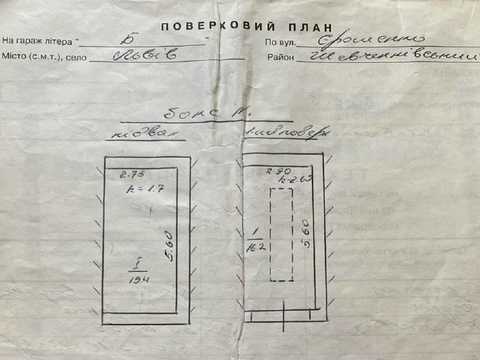 ПОВЕРКОВИЙ ПЛАН
На гараж літера " Б " По вул. Єрошенко
Місто (с.м.т.), село Львів Район Шевченківський
бокс
підвал І поверх
2.75 2.90
h=1.7 h=2.63
5.60 5.60
I/15.4 1/16.2